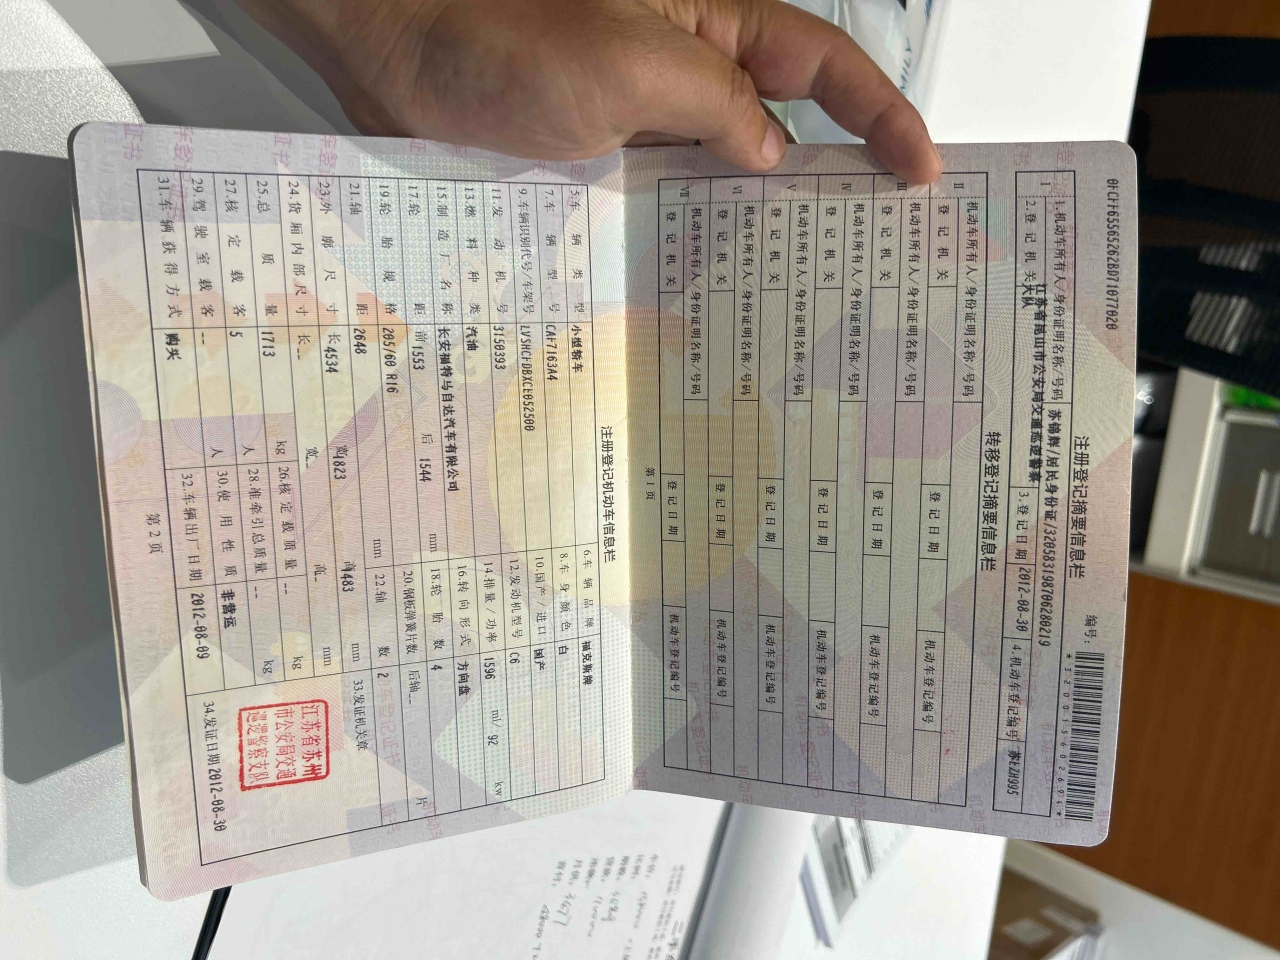 0FCFF65565262807107702​0
注册登记摘要信息栏
编号:
*320015602694*
I 1.机动车所有人/身份证明名称/号码 苏锦辉/居民身份证/320583198706280219
2.登记机关 江苏省昆山市公安局交通巡逻警察大队 3.登记日期 2012-08-30 4.机动车登记编号 苏EZH995
转移登记摘要信息栏
II 机动车所有人/身份证明名称/号码
登记机关 登记日期 机动车登记编号
III 机动车所有人/身份证明名称/号码
登记机关 登记日期 机动车登记编号
IV 机动车所有人/身份证明名称/号码
登记机关 登记日期 机动车登记编号
V 机动车所有人/身份证明名称/号码
登记机关 登记日期 机动车登记编号
VI 机动车所有人/身份证明名称/号码
登记机关 登记日期 机动车登记编号
VII 机动车所有人/身份证明名称/号码
登记机关 登记日期 机动车登记编号
第1页
注册登记机动车信息栏
5.车辆类型 小型轿车 6.车辆品牌 福克斯牌
7.车辆型号 CAF7163A4 8.车身颜色 白
9.车辆识别代号/车架号 LVSHCFDBXCE052500 10.国产/进口 国产
11.发动机号 3150393 12.发动机型号 C6
13.燃料种类 汽油 14.排量/功率 1596 ml/ 92 kw
15.制造厂名称 长安福特马自达汽车有限公司 16.转向形式 方向盘
17.轮距 前1553 后 1544 mm 18.轮胎数 4
19.轮胎规格 205/60 R16 20.钢板弹簧片数 后轴-- 片
21.轴距 2648 mm 22.轴数 2
23.外廓尺寸 长4534 宽1823 高1483 mm 33.发证机关章
24.货厢内部尺寸 长-- 宽-- 高-- mm
25.总质量 1713 kg 26.核定载质量 -- kg
27.核定载客 5 人 28.准牵引总质量 -- kg
29.驾驶室载客 -- 人 30.使用性质 非营运
31.车辆获得方式 购买 32.车辆出厂日期 2012-08-09 34.发证日期 2012-08-30
江苏省苏州
市公安局交通
巡逻警察支队
第2页